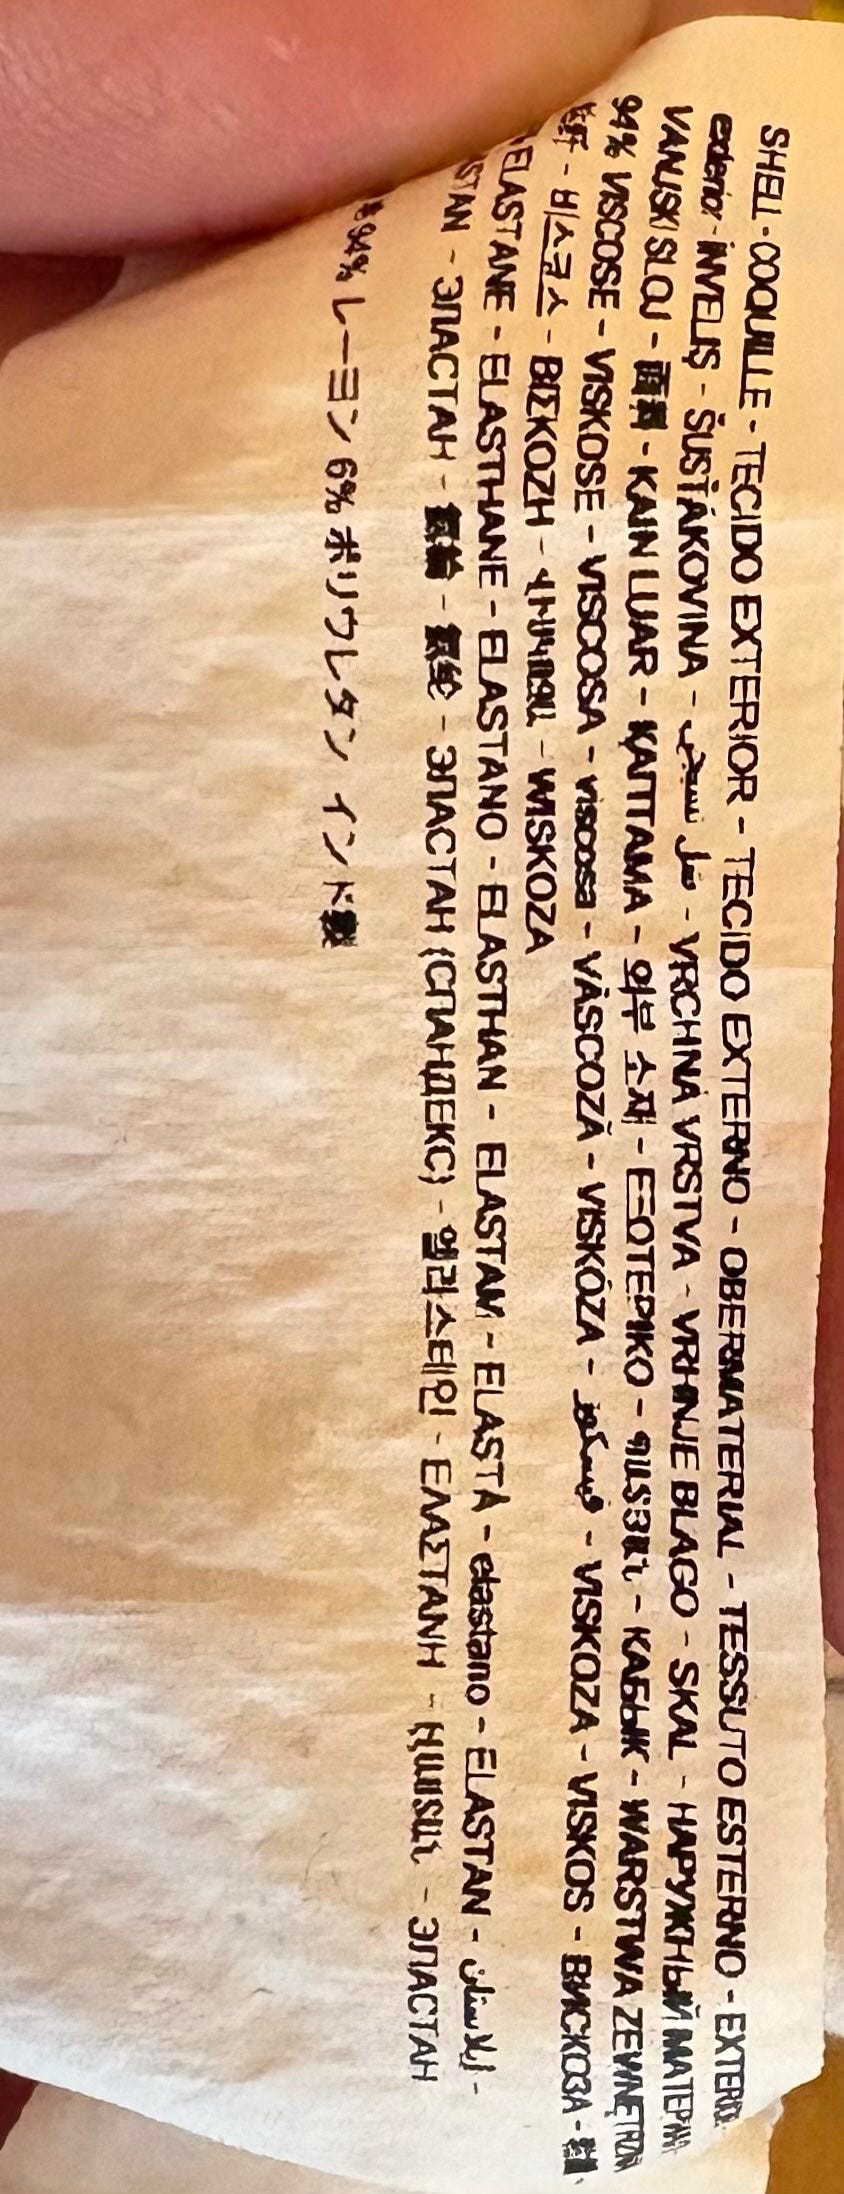 SHELL - COQUILLE - TECIDO EXTERIOR - TECIDO EXTERNO - OBERMATERIAL - TESSUTO ESTERNO -
exterior - İNVELIŞ - ŠUSŤÁKOVINA - - VRCHNÁ VRSTVA - VRHNJE BLAGO - SKAL - НАРУЖНЫЙ
VANJSKI SLOJ - 面料 - KAIN LUAR - ҚАПТАМА - 외부 소재 - ΕΞΩΤΕΡΙΚΟ - - КАБЫК - WARSTWA
94% VISCOSE - VISKOSE - VISCOSA - viscosa - VÂSCOZĂ - VISKÓZA - فيسكوز - VISKOZA - VISKOS - ВИСКОЗА -
- 비스코스 - ΒΙΣΚΟΖΗ - - WISKOZA
ELASTANE - ELASTHANE - ELASTANO - ELASTHAN - ELASTAM - ELASTÁ - elastano - ELASTAN - إيلاستان -
- ЭЛАСТАН - - - ЭЛАСТАН (СПАНДЕКС) - 엘라스테인 - ΕΛΑΣΤΑΝΗ - - ЭЛАСТАН
94% レーヨン 6% ポリウレタン インド製